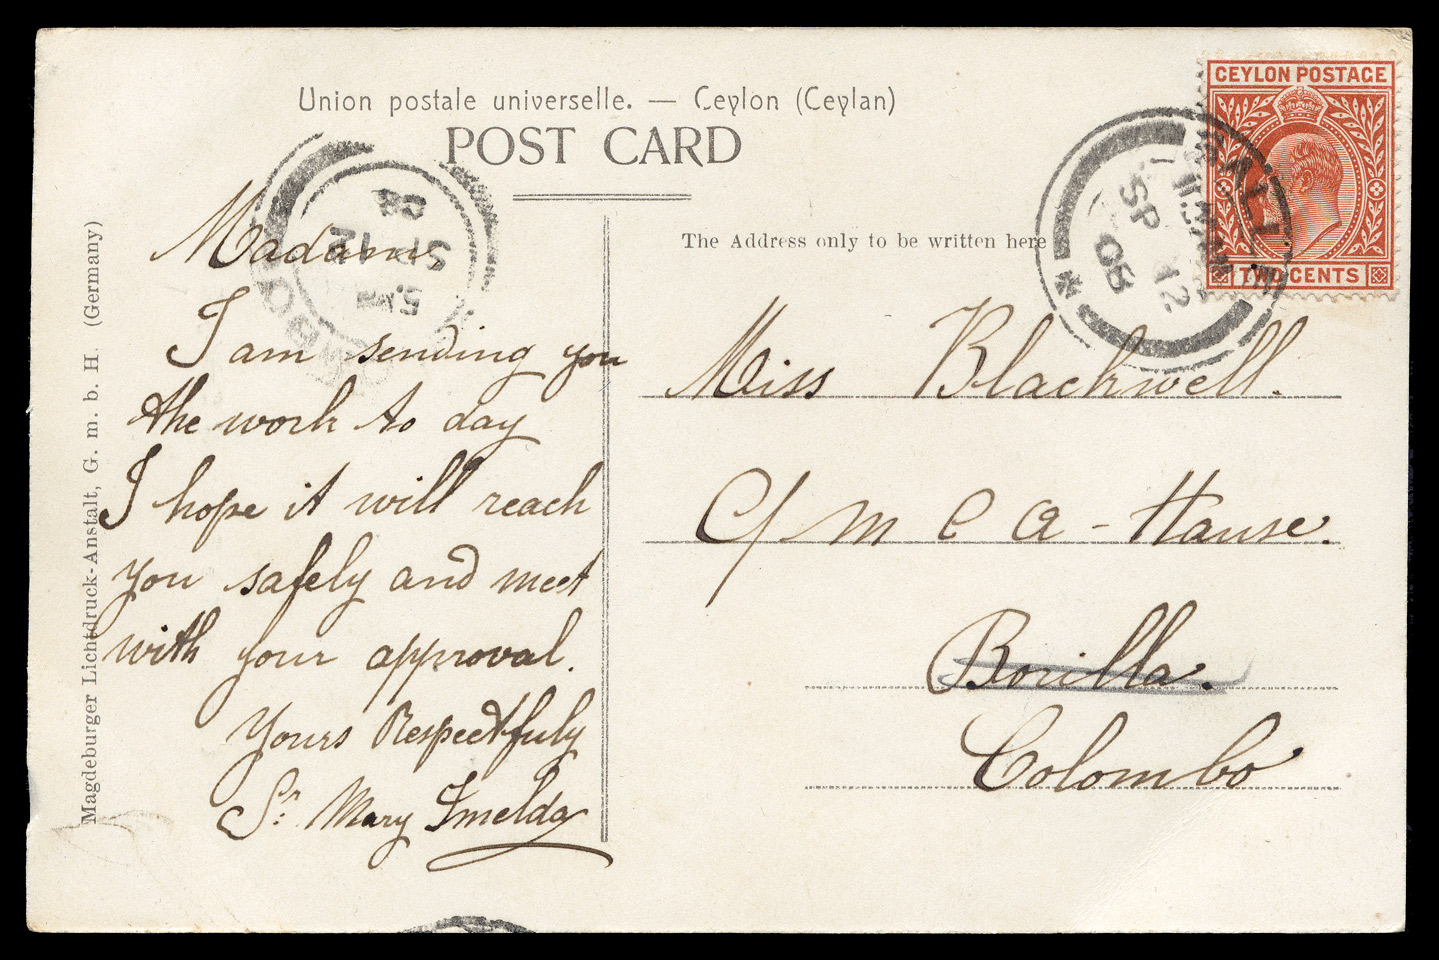 Union postale universelle. — Ceylon (Ceylan)
POST CARD
CEYLON POSTAGE
TWO CENTS
GALLE
SP 12
08
SP 12
08
The Address only to be written here
Madam
I am sending you
the work to day
I hope it will reach
you safely and meet
with your approval.
Yours Respectfuly
Sr. Mary Imelda
Miss Blackwell.
C/ M C A - House.
Borilla.
Colombo
Magdeburger Lichtdruck-Anstalt, G. m. b. H. (Germany)